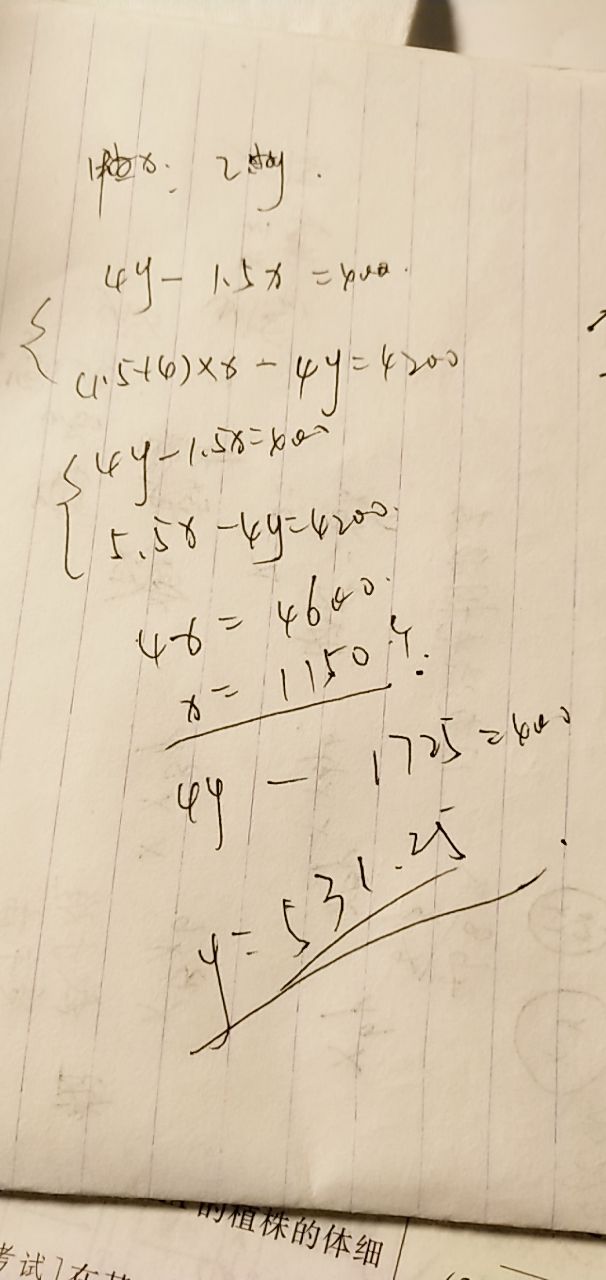 4y - 1.5x = 400.
(1.5+4)×x - 4y = 4200
4y - 1.5x = 400
5.5x - 4y = 4200.
4x = 4600.
x = 1150
4y - 1725 = 400
y = 531.25
的植株的体细
考试]在